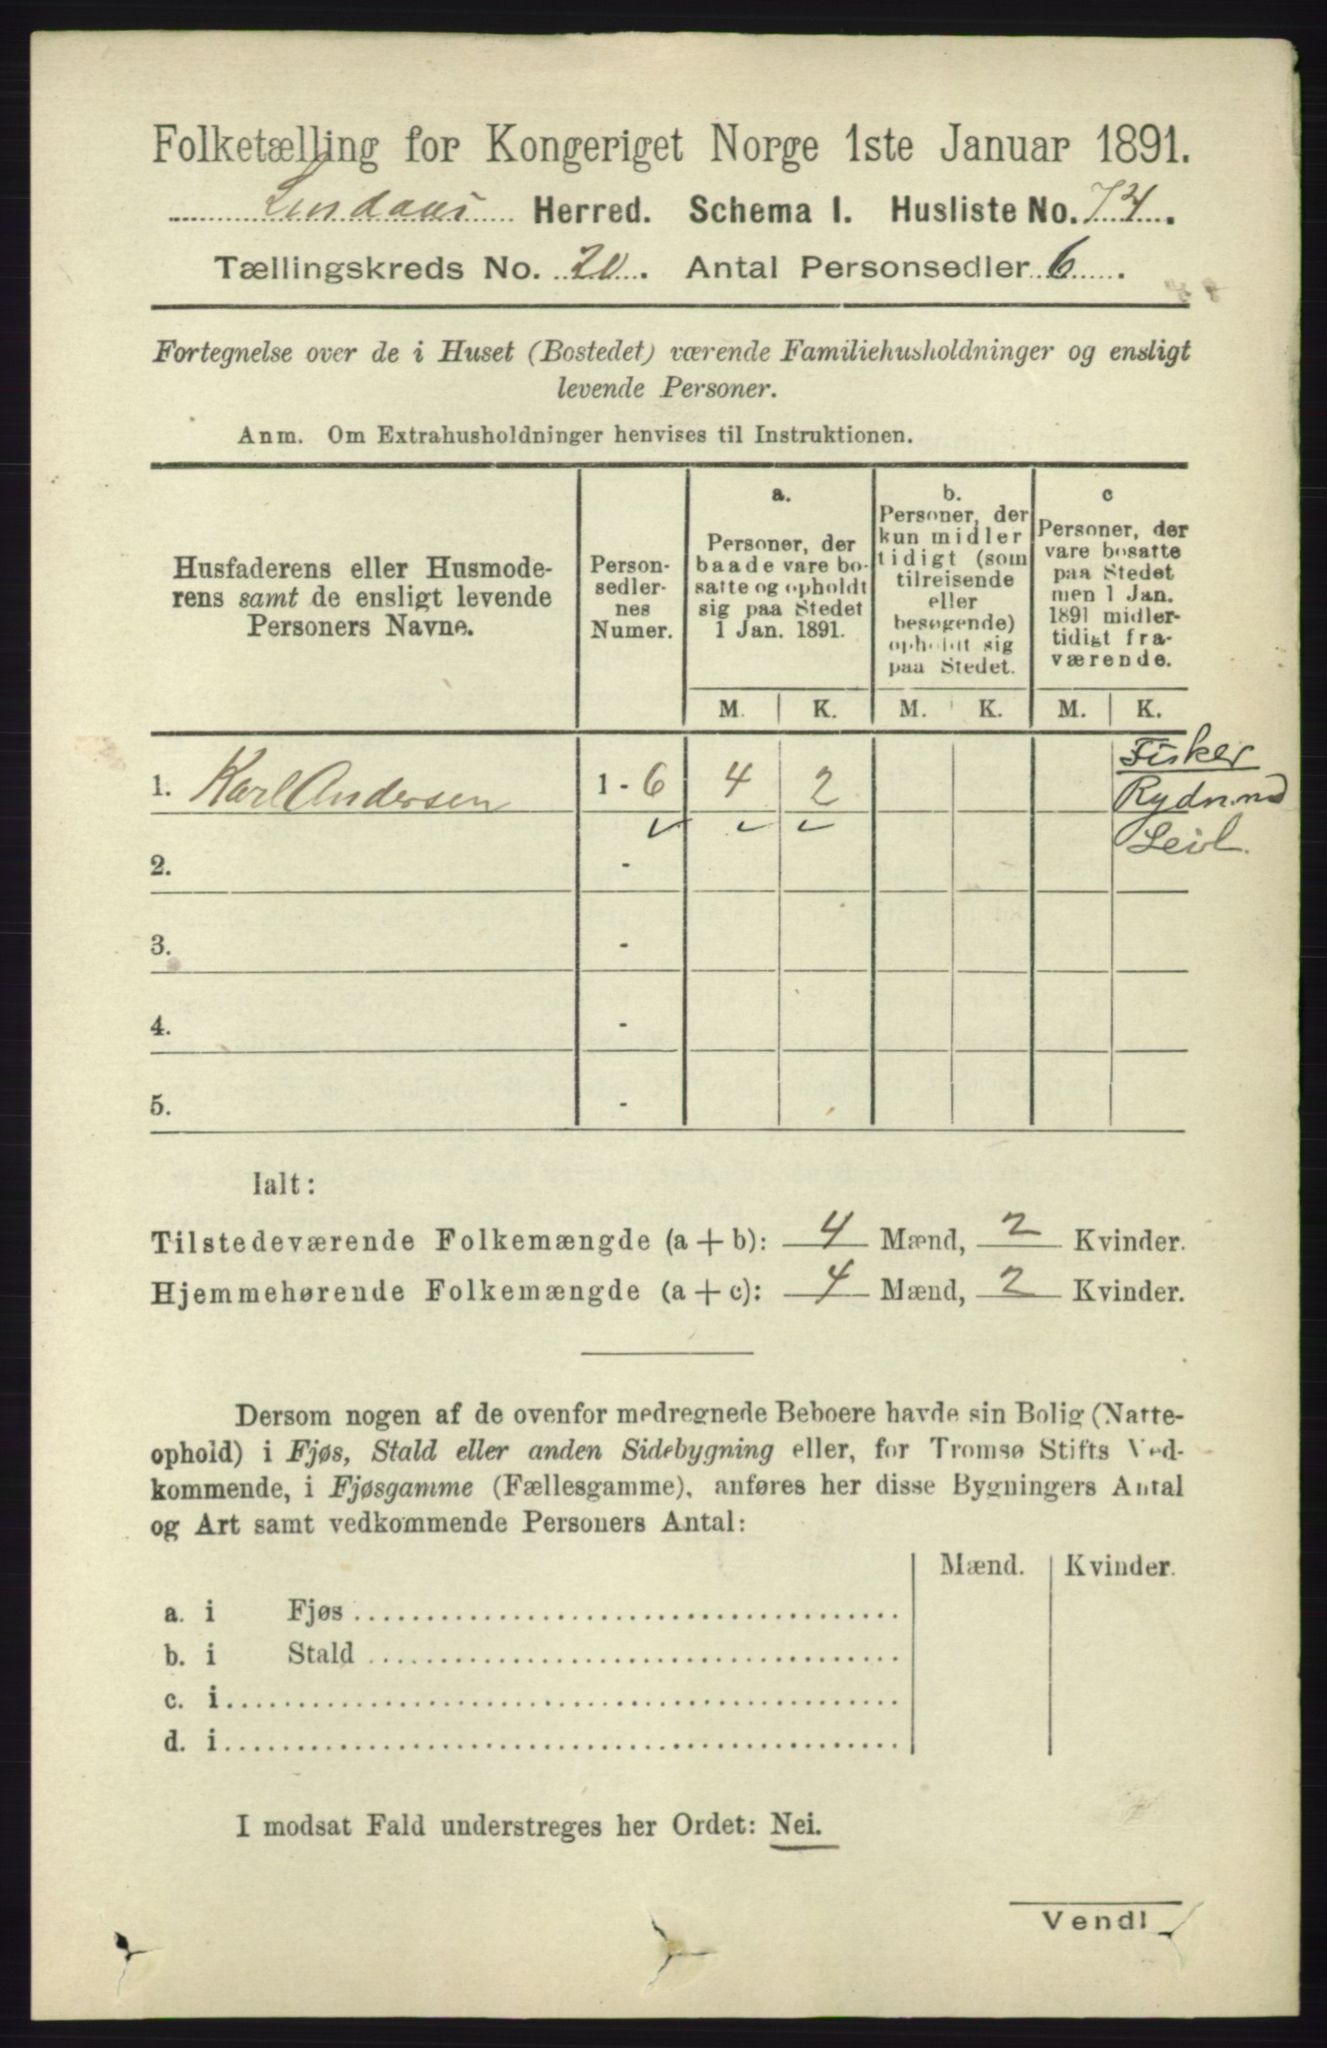 Folketælling for Kongeriget Norge 1ste Januar 1891.
Lindaas Herred. Schema I. Husliste No. 74.
Tællingskreds No. 20. Antal Personsedler 6.
Fortegnelse over de i Huset (Bostedet) værende Familiehusholdninger og ensligt
levende Personer.
Anm. Om Extrahusholdninger henvises til Instruktionen.
Husfaderens eller Husmode-
rens samt de ensligt levende
Personers Navne.
Person-
sedler-
nes
Numer.
a.
Personer, der
baade vare bo-
satte og opholdt
sig paa Stedet
1 Jan. 1891.
b.
Personer, der
kun midler
tidigt (som
tilreisende
eller
besøgende)
opholdt sig
paa Stedet.
c
Personer, der
vare bosatte
paa Stedet
men 1 Jan.
1891 midler-
tidigt fra-
værende.
M. K. M. K. M. K.
Fisker
1. Karl Andersen 1 - 6 4 2
2. -
3. -
4. -
5. -
Ialt:
Tilstedeværende Folkemængde (a + b): 4 Mænd, 2 Kvinder.
Hjemmehørende Folkemængde (a + c): 4 Mænd, 2 Kvinder.
Dersom nogen af de ovenfor medregnede Beboere havde sin Bolig (Natte-
ophold) i Fjøs, Stald eller anden Sidebygning eller, for Tromsø Stifts Ved-
kommende, i Fjøsgamme (Fællesgamme), anføres her disse Bygningers Antal
og Art samt vedkommende Personers Antal:
Mænd. Kvinder.
a. i Fjøs
b. i Stald
c. i
d. i
I modsat Fald understreges her Ordet: Nei.
Vend!